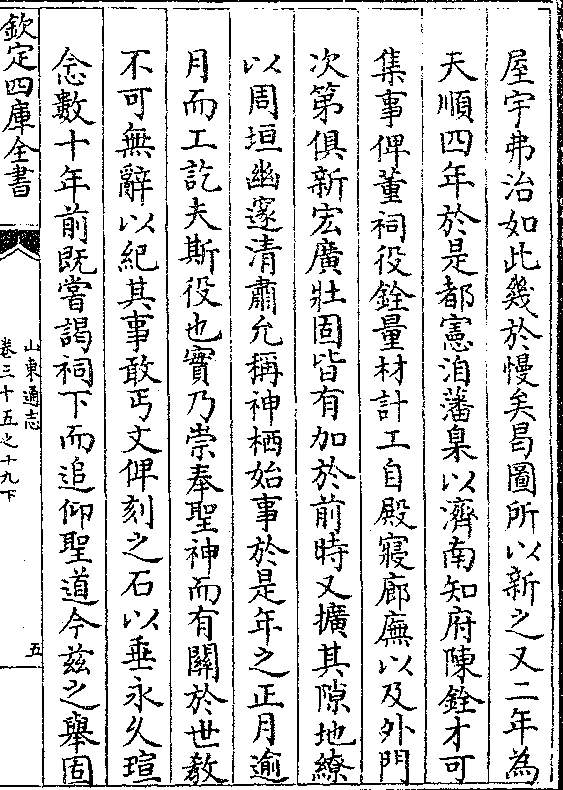 屋宇弗治如此幾於慢矣曷圖所以新之又二年為
天順四年於是都憲洎藩臬以濟南知府陳銓才可
集事俾董祠役銓量材計工自殿寢廊廡以及外門
次第俱新宏廣壯固皆有加於前時又擴其隙地繚
以周垣幽邃清肅允稱神栖始事於是年之正月逾
月而工訖夫斯役也實乃崇奉聖神而有關於世教
不可無辭以紀其事敢丐文俾刻之石以垂永久瑄
念數十年前既嘗謁祠下而追仰聖道今茲之舉固
欽定四庫全書
山東通志
卷三十五之十九下
五